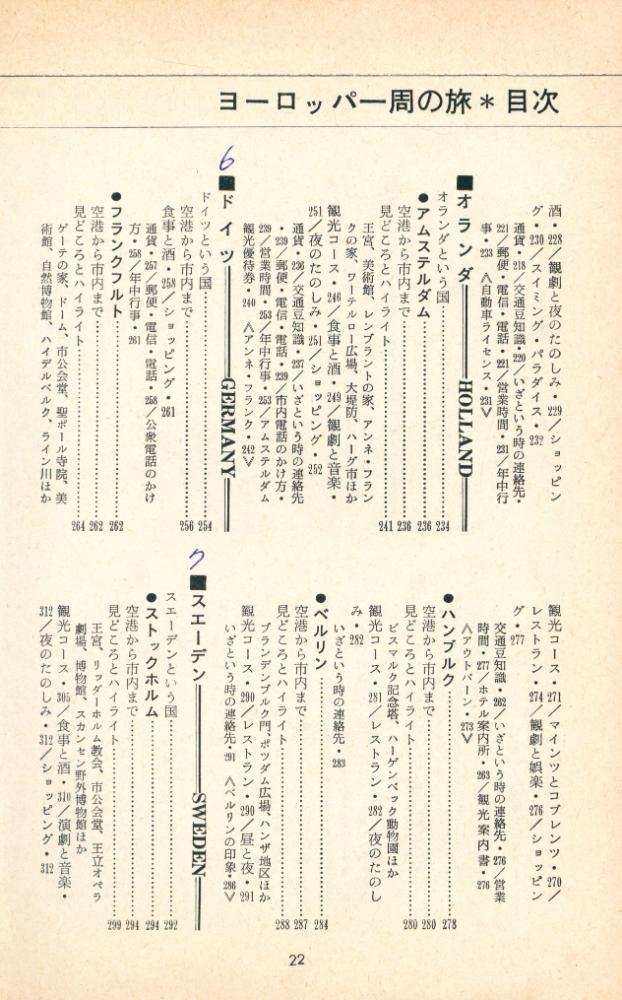 ヨーロッパ一周の旅＊目次
酒・228／観劇と夜のたのしみ・229／ショッピン
グ・230／スイミング・パラダイス・232
通貨・218／交通豆知識・220／いざという時の連絡先・
221／郵便・電信・電話・221／営業時間・231／年中行
事・233 〈自動車ライセンス・231〉
■オランダ HOLLAND
オランダという国 234
●アムステルダム 236
空港から市内まで 236
見どころとハイライト 241
王宮、美術館、レンブラントの家、アンネ・フラン
クの家、ワーテルロー広場、大堤防、ハーグ市ほか
観光コース・246／食事と酒・249／観劇と音楽・
251／夜のたのしみ・251／ショッピング・252
通貨・236／交通豆知識・237／いざという時の連絡先
・239／郵便・電信・電話・239／市内電話のかけ方・
239／営業時間・253／年中行事・253／アムステルダム
観光優待券・240 〈アンネ・フランク・242〉
6
■ドイツ GERMANY
ドイツという国 254
空港から市内まで 256
食事と酒・258／ショッピング・261
通貨・257／郵便・電信・電話・258／公衆電話のかけ
方・258／年中行事・261
●フランクフルト 262
空港から市内まで 262
見どころとハイライト 264
ゲーテの家、ドーム、市公会堂、聖ポール寺院、美
術館、自然博物館、ハイデルベルク、ライン川ほか
観光コース・271／マインツとコブレンツ・270／
レストラン・274／観劇と娯楽・276／ショッピン
グ・277
交通豆知識・262／いざという時の連絡先・276／営業
時間・277／ホテル案内所・263／観光案内書・276
〈アウトバーン・273〉
●ハンブルク 278
空港から市内まで 280
見どころとハイライト 280
ビスマルク記念塔、ハーゲンベック動物園ほか
観光コース・281／レストラン・282／夜のたのし
み・282
いざという時の連絡先・283
●ベルリン 284
空港から市内まで 287
見どころとハイライト 288
ブランデンブルク門、ポツダム広場、ハンザ地区ほか
観光コース・290／レストラン・290／昼と夜・291
いざという時の連絡先・291 〈ベルリンの印象・286〉
7
■スエーデン SWEDEN
スエーデンという国 292
●ストックホルム 294
空港から市内まで 294
見どころとハイライト 299
王宮、リッダーホルム教会、市公会堂、王立オペラ
劇場、博物館、スカンセン野外博物館ほか
観光コース・305／食事と酒・310／演劇と音楽・
312／夜のたのしみ・312／ショッピング・312
22